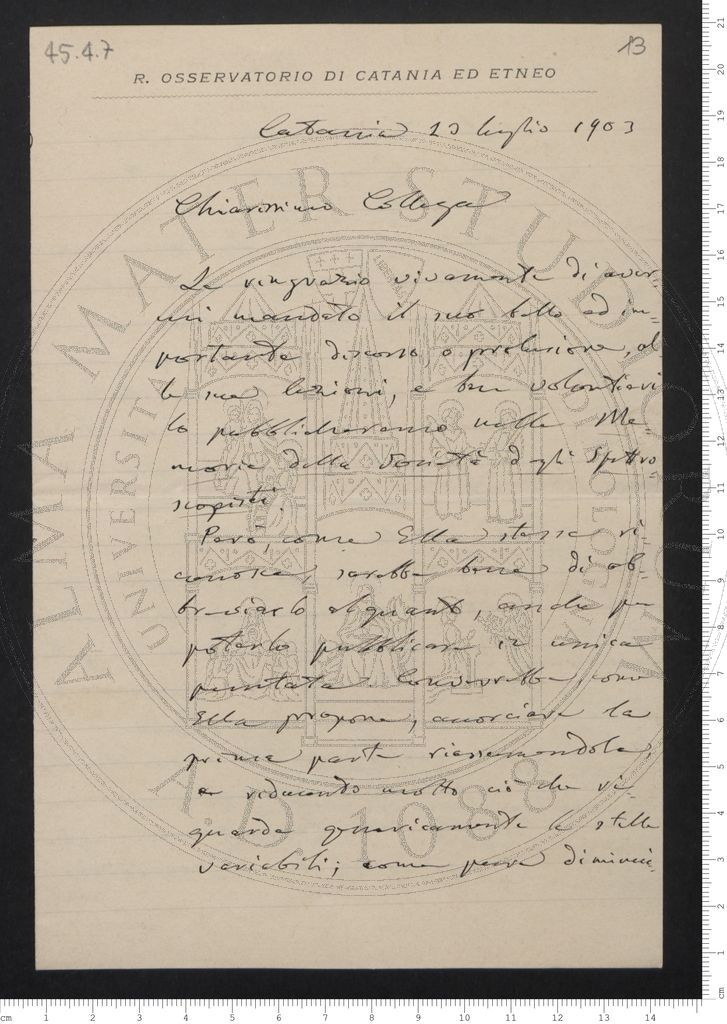 45.4.7
13
R. OSSERVATORIO DI CATANIA ED ETNEO
Catania 23 luglio 1903
Chiarissimo Collega
La ringrazio vivamente di aver-
mi mandato il suo bello ed im-
portante discorso, o prolusione, al
le sue lezioni, e ben volontieri
lo pubblicheremo nelle Me-
morie della Società degli Spettro
scopisti.
Però, come Ella stessa ri-
conosce, sarebbe bene di ab-
breviarlo alquanto, anche per
poterlo pubblicare in unica
puntata. Converrebbe, come
Ella propone, accorciare la
prima parte riassumendola,
e riducendo molto ciò che ri-
guarda genericamente le stelle
variabili; come pure diminui-
ALMA MATER STUDIORUM
UNIVERSITÀ DI BOLOGNA
A.D. 1088